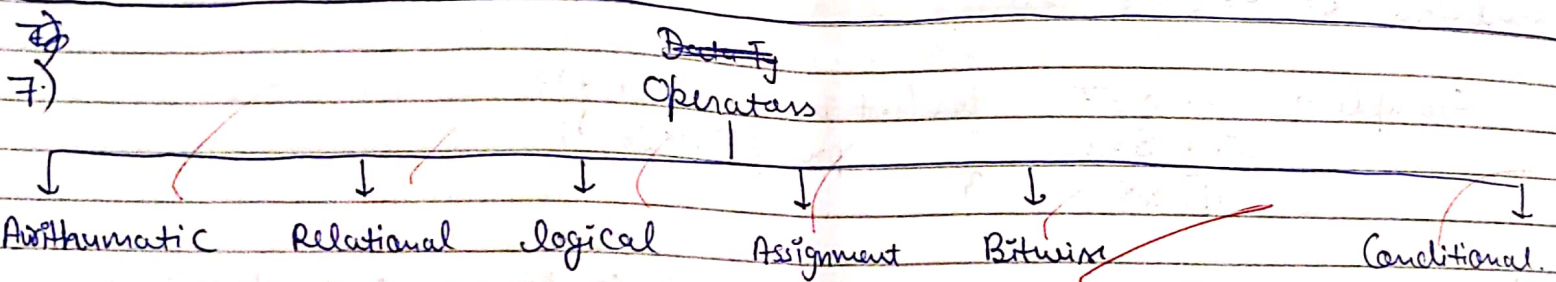 7.)
Operators
Arithumatic Relational logical Assignment Bitwise Conditional.